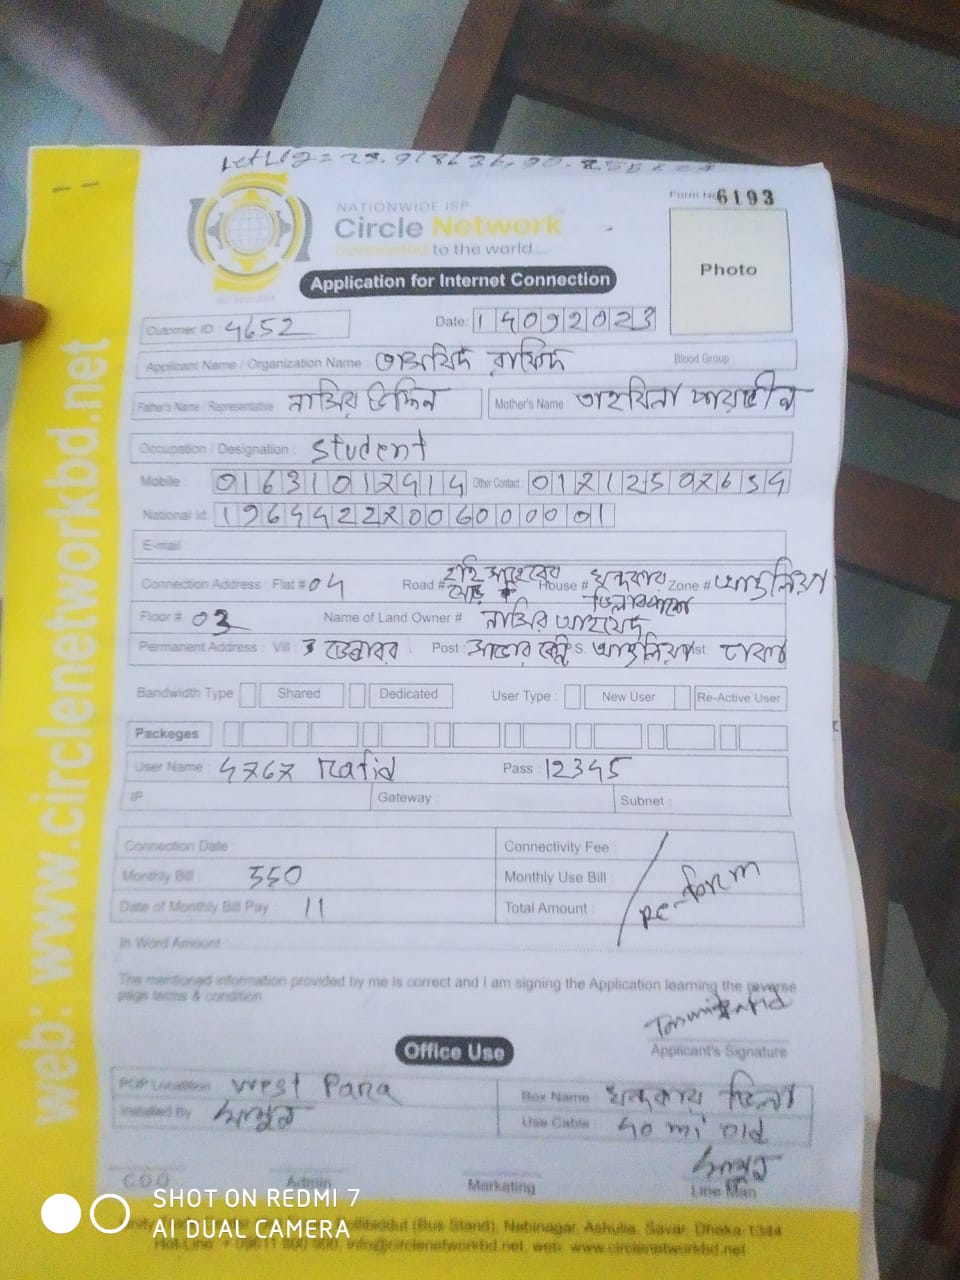 NATIONWIDE ISP
Circle Network
Connected to the world....
Form No 6193
Photo
Application for Internet Connection
Customer ID : 4652
Date: 14092023
Applicant Name / Organization Name : তাসমিদ রাফিদ
Blood Group :
Father's Name / Representative : নাসির উদ্দিন
Mother's Name : তাহমিনা পারভীন
Occupation / Designation : Student
Mobile :
Other Contact :
National Id:
E-mail :
Connection Address : Flat # 04 Road # House # খন্দকার ভিলার পাশে Zone # আশুলিয়া
Floor # 03 Name of Land Owner # নাসির আহমেদ
Permanent Address : Vill : Post : S. আশুলিয়া st: ঢাকা
Bandwidth Type Shared Dedicated User Type : New User Re-Active User
Packeges
User Name : Rafid Pass : 12345
IP Gateway : Subnet :
Connection Date : Connectivity Fee :
Monthly Bill : 550 Monthly Use Bill :
Date of Monthly Bill Pay : 11 Total Amount :
Re-form
In Word Amount :
The mentioned information provided by me is correct and I am signing the Application learning the reverse
page terms & condition
Applicant's Signature
Office Use
POP Location West Para Box Name খন্দকার ভিলা
Installed By মামুন Use Cable : 40 mi old
মামুন
C.O.O Admin Marketing Line Man
(Bus Stand), Nabinagar, Ashulia, Savar, Dhaka-1344
info@circlenetworkbd.net, web: www.circlenetworkbd.net
web: www.circlenetworkbd.net
SHOT ON REDMI 7
AI DUAL CAMERA